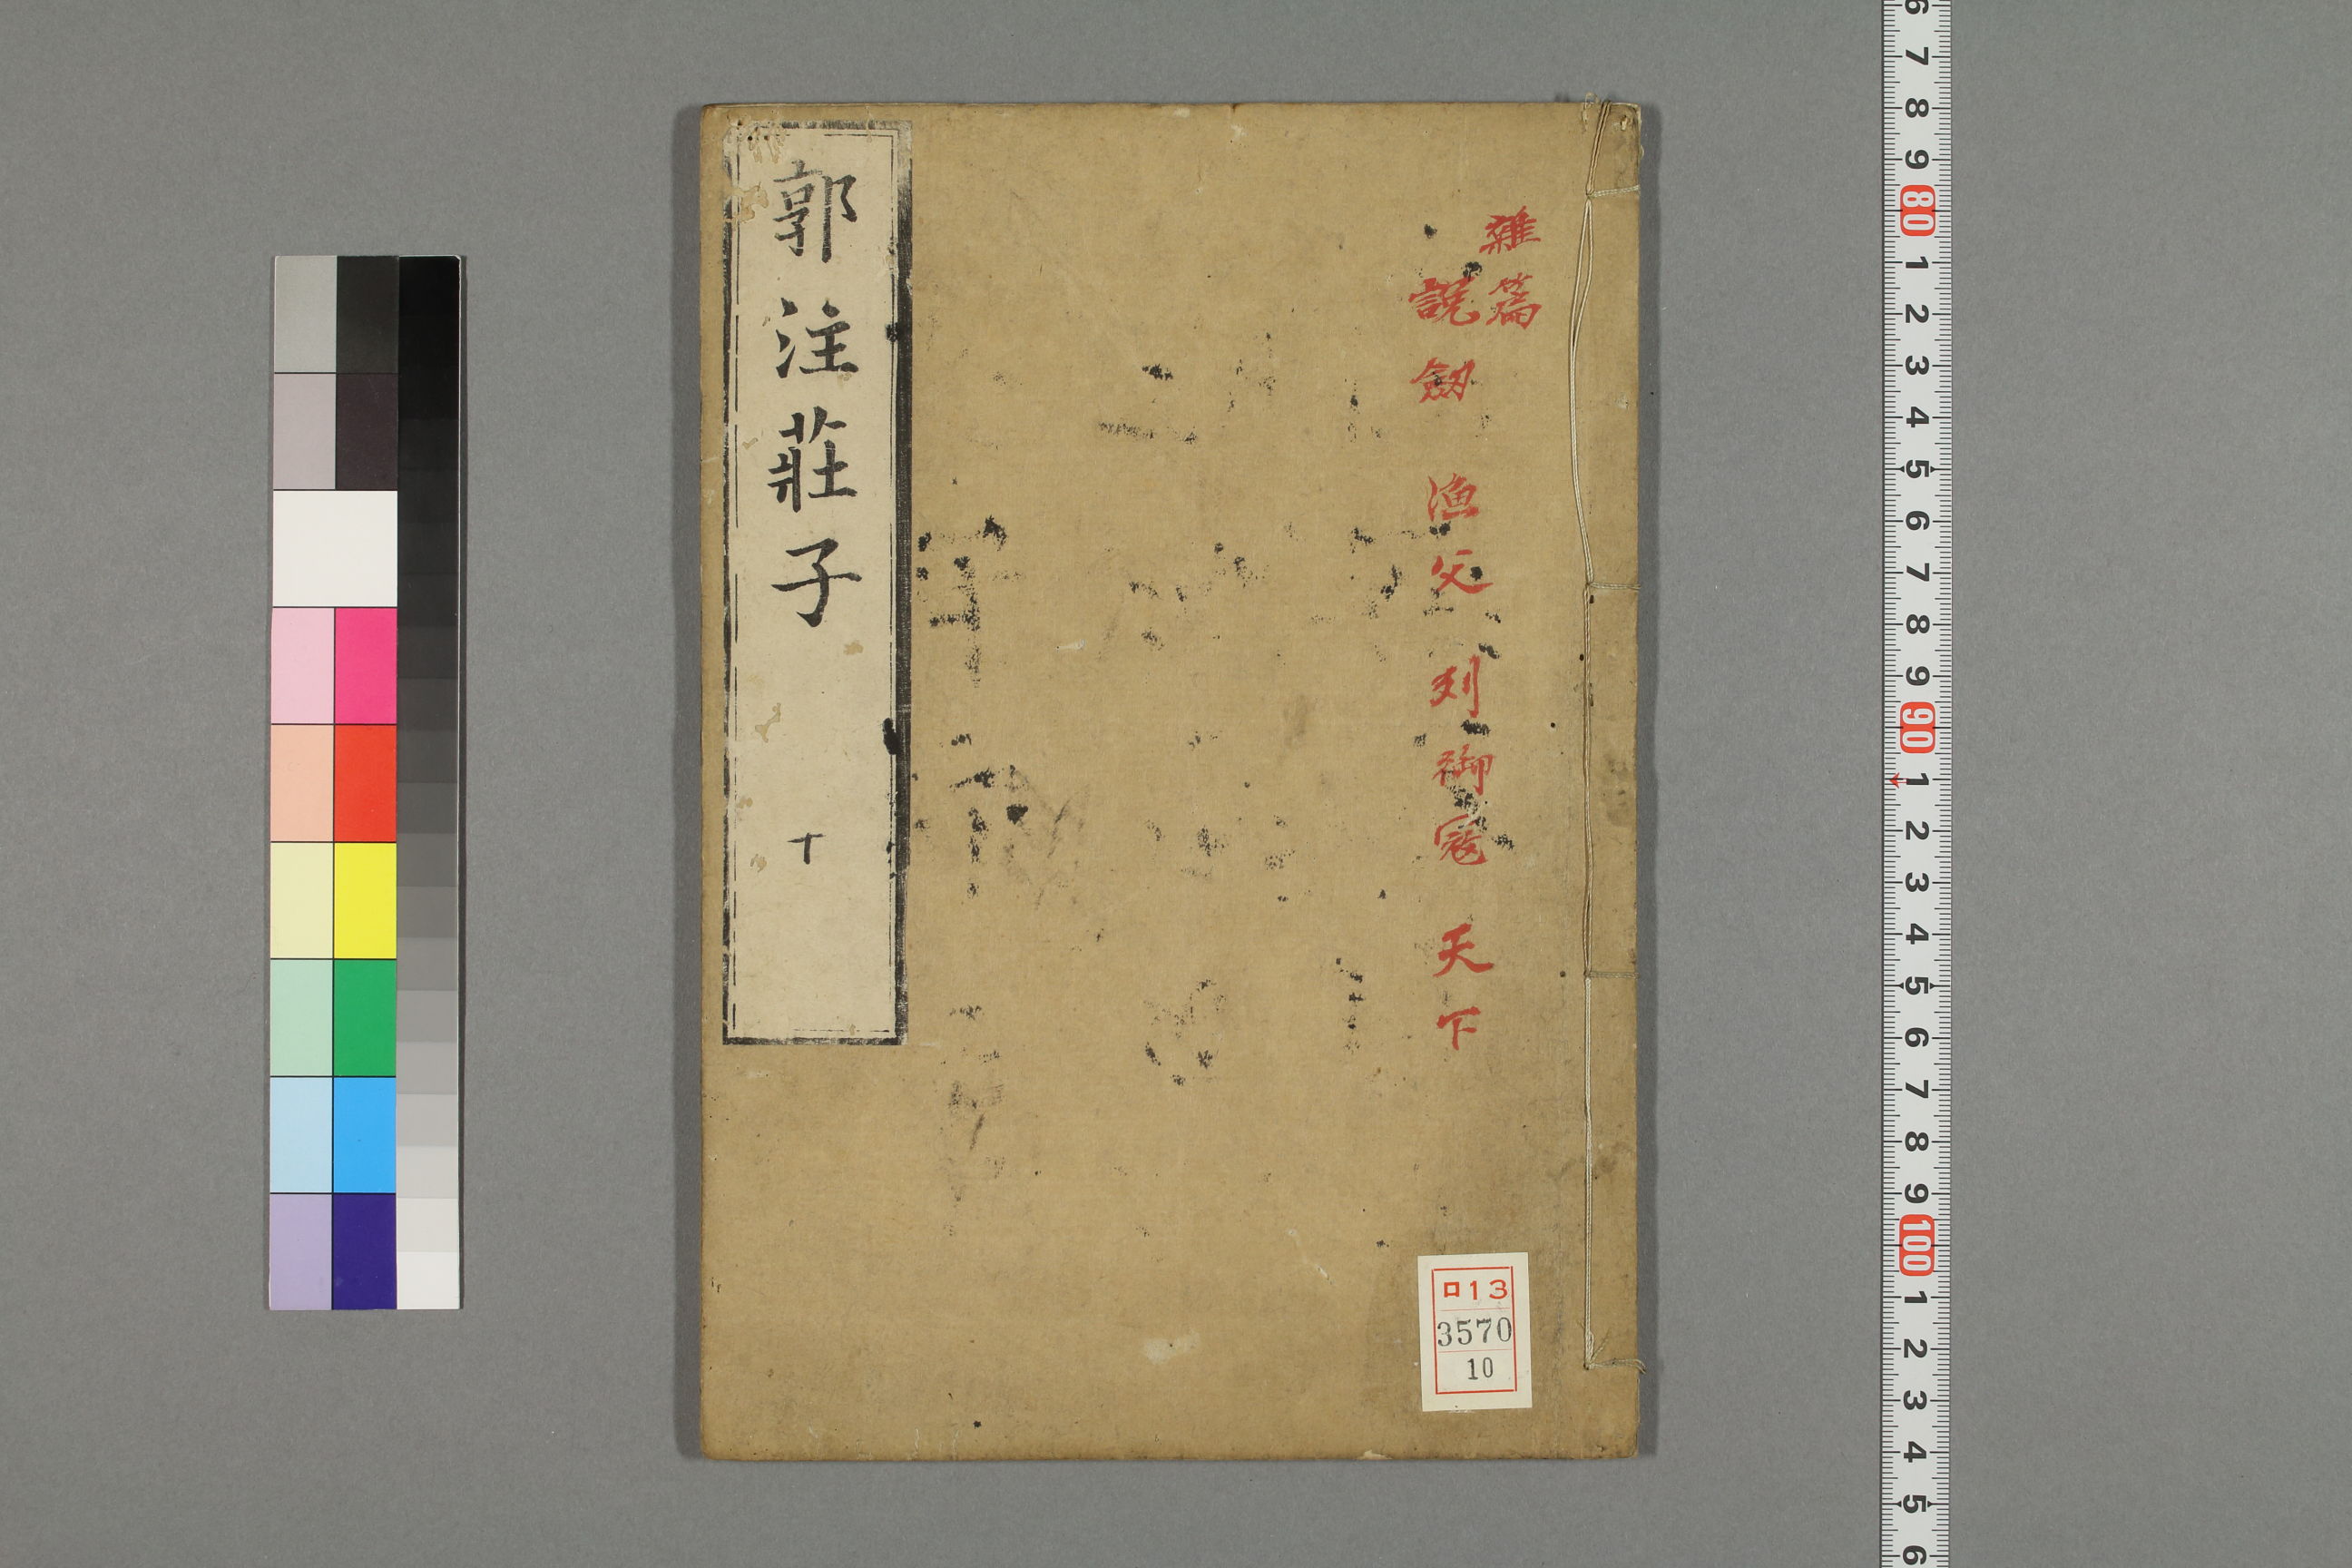 雜篇
說劔
漁父
列御寇
天下
郭注莊子
十
ロ13
3570
10
6
7
8
9
80
1
2
3
4
5
6
7
8
9
90
1
2
3
4
5
6
7
8
9
100
1
2
3
4
5
6